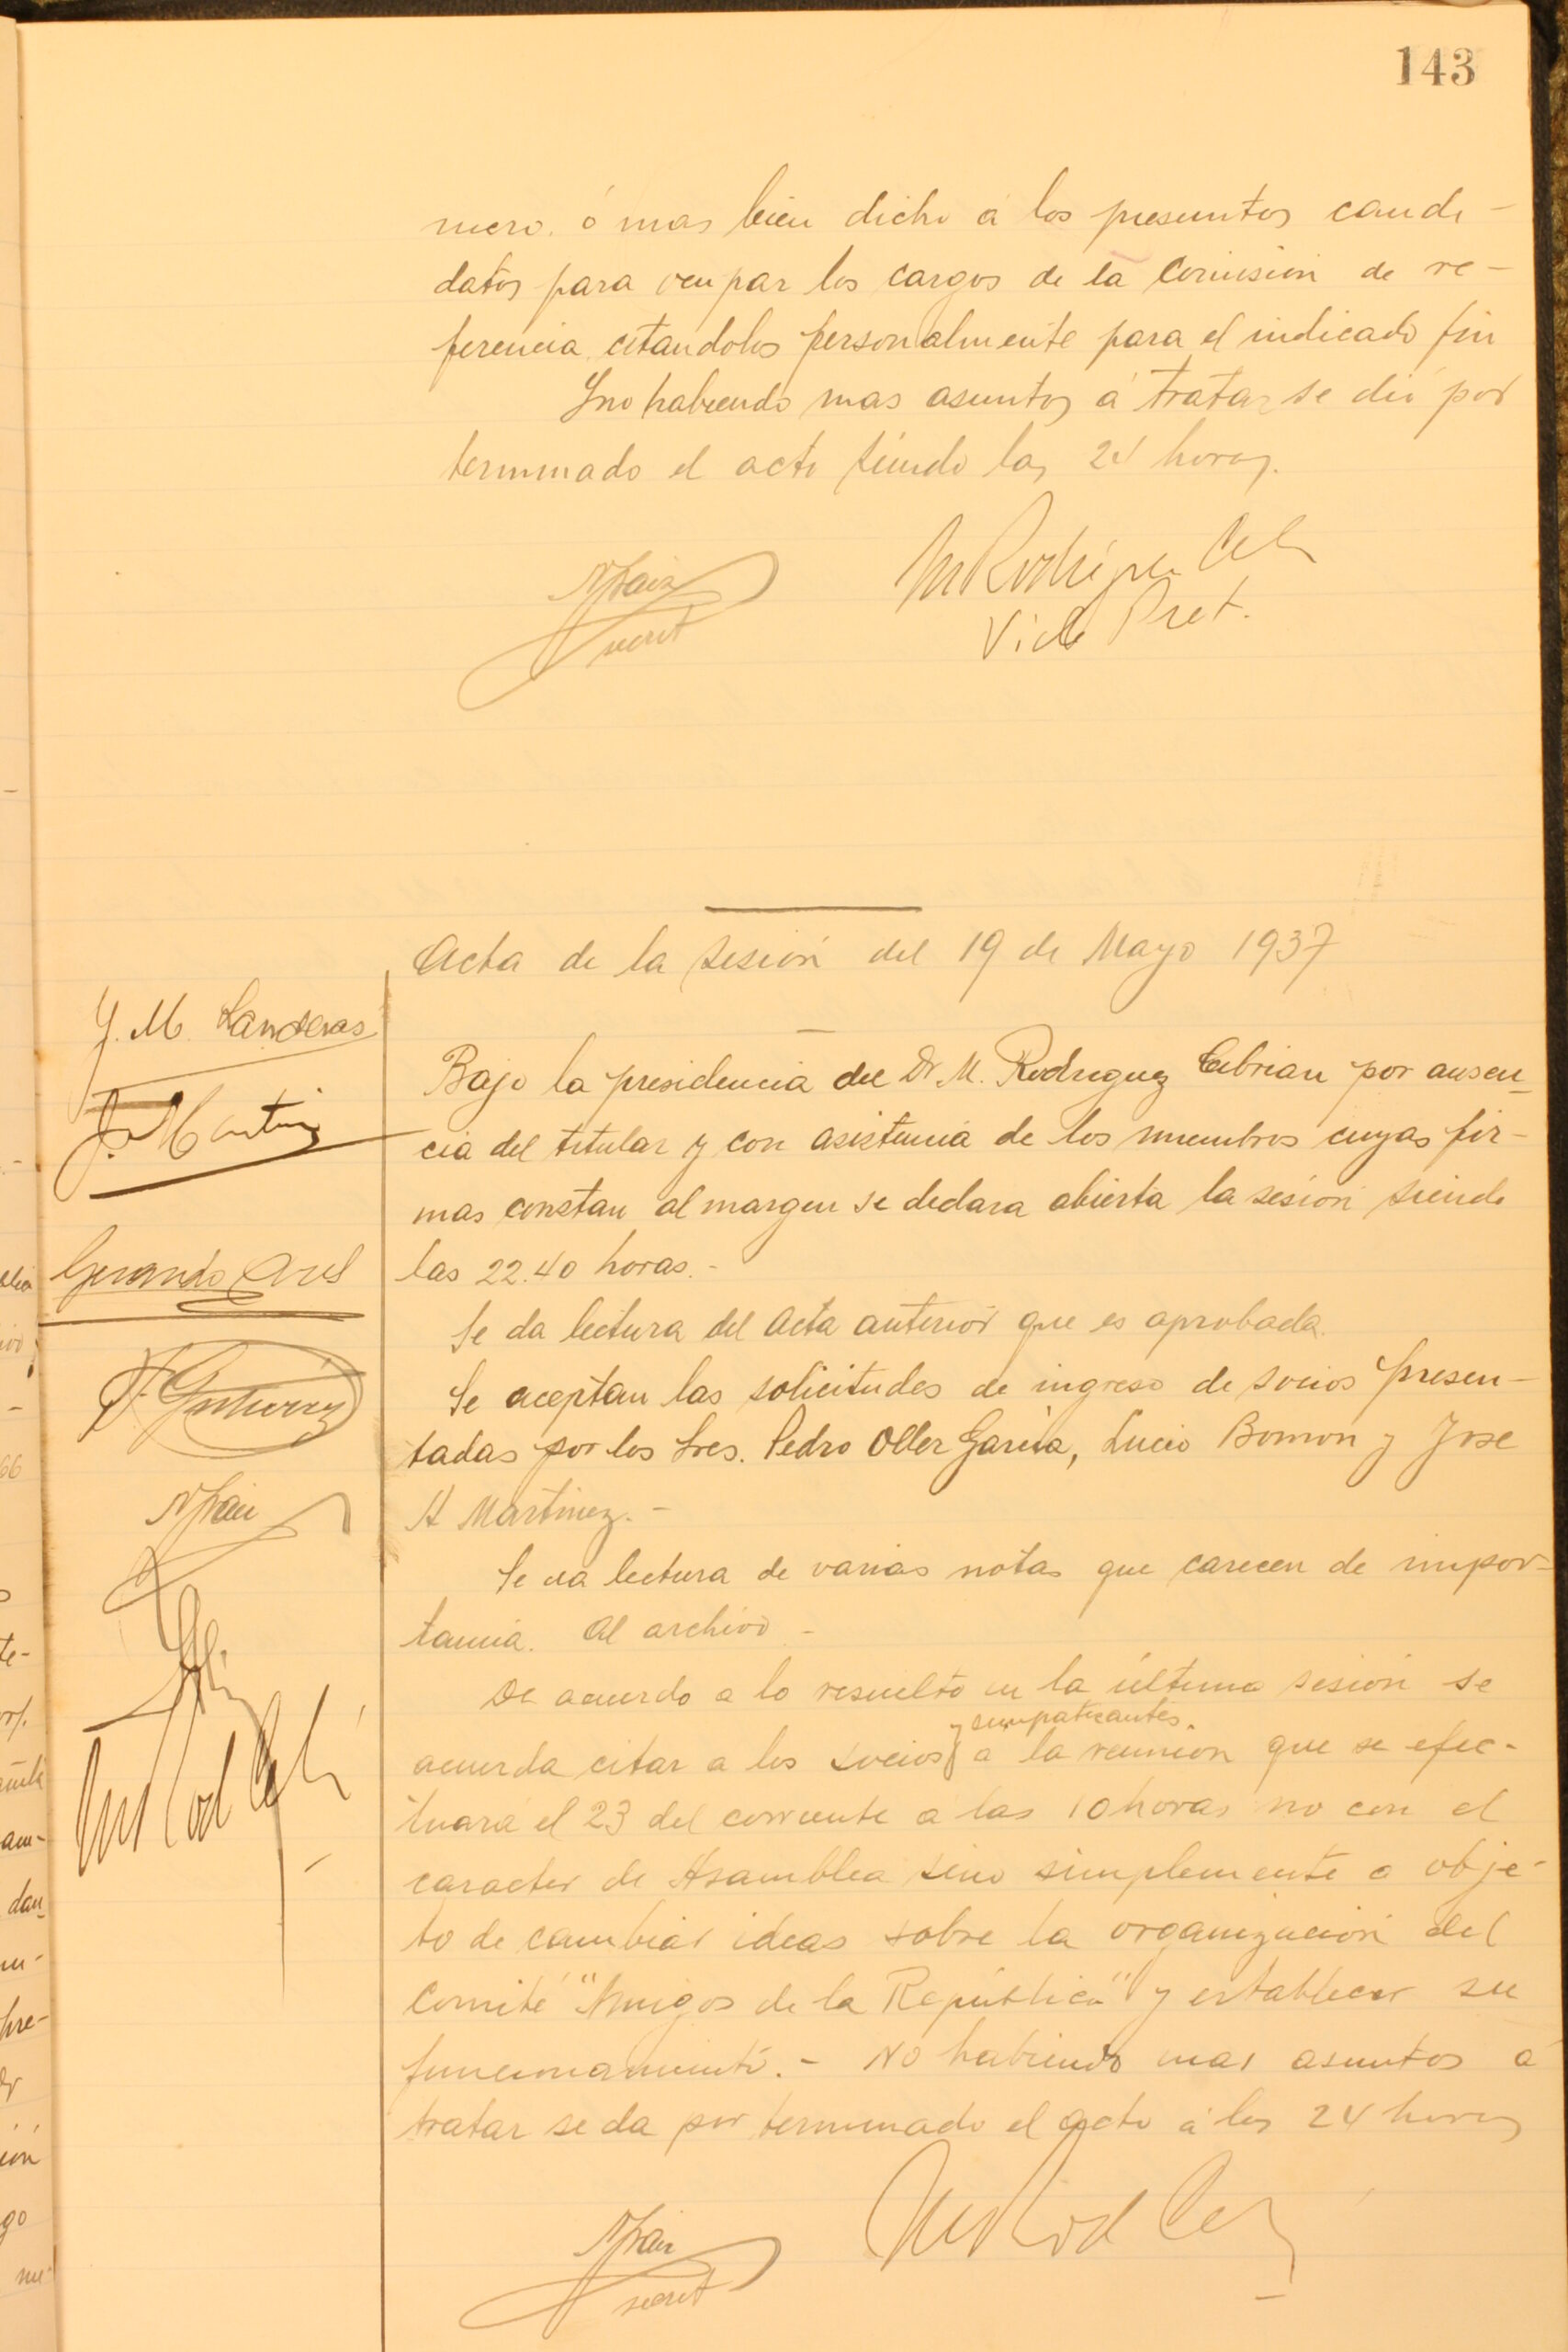 143
mero. ó mas bien dicho á los presuntos candi-
datos para ocupar los cargos de la Comision de re-
ferencia citandolos personalmente para el indicado fin
Y no habiendo mas asuntos á tratar se dió por
terminado el acto siendo las 24 horas.
secret
M Rodriguez Ceb
Vice Pret.
Acta de la sesión del 19 de Mayo 1937
J. M. Landeras
J. Martin
Gerardo Ares
F. Gutierrez
Bajo la presidencia del Dr. M. Rodriguez Cebrian por ausen-
cia del titular y con asistencia de los miembros cuyas fir-
mas constan al margen se declara abierta la sesión siendo
las 22.40 horas.-
Se da lectura del Acta anterior que es aprobada.
Se aceptan las solicitudes de ingreso de socios presen-
tadas por los Sres. Pedro Oller Garcia, Lucio Bomon y Jose
A Martinez.-
Se da lectura de varias notas que carecen de impor-
tancia. Al archivo -
De acuerdo a lo resuelto en la última sesión se
y simpatizantes.
acuerda citar a los socios a la reunion que se efec-
tuará el 23 del corriente a las 10 horas no con el
caracter de Asamblea sino simplemente a obje-
to de cambiar ideas sobre la organización del
Comité "Amigos de la República" y establecer su
funcionamiento.- No habiendo mas asuntos á
tratar se da por terminado el acto á las 24 horas
M Rod Ceb
secret